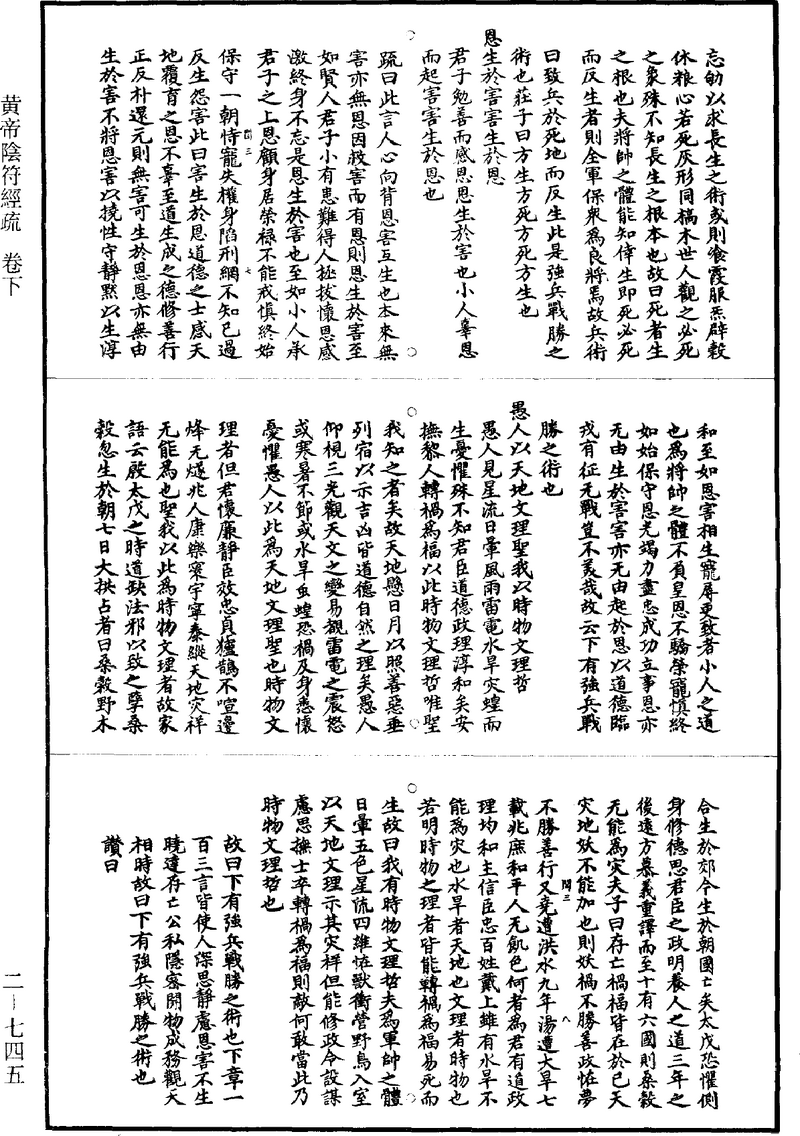 黃帝陰符經疏　卷下
忘劬以求長生之術或則飡霞服炁辟穀
休粮心若死灰形同槁木世人觀之必死
之象殊不知長生之根本也故曰死者生
之根也夫將帥之體能知倖生即死必死
而反生者則全軍保衆爲良將焉故兵術
曰致兵於死地而反生此是強兵戰勝之
術也莊子曰方生方死方死方生也
恩生於害害生於恩
君子勉善而感恩恩生於害也小人辜恩
而起害害生於恩也
疏曰此言人心向背恩害互生也本來無
害亦無恩因救害而有恩則恩生於害至
如賢人君子小有患難得人拯拔懷恩感
激終身不忘是恩生於害也至如小人承
君子之上恩顧身居榮祿不能戒慎終始
閏三　七
保守一朝恃寵失權身陷刑網不知已過
反生怨害此曰害生於恩道德之士感天
地覆育之恩不辜至道生成之德修善行
正反朴還元則無害可生於恩恩亦無由
生於害不將恩害以撓性守靜默以生淳
和至如恩害相生寵辱更致者小人之道
也爲將帥之體不負皇恩不驕榮寵慎終
如始保守恩光竭力盡忠成功立事恩亦
无由生於害害亦无由起於恩以道德臨
戎有征无戰豈不美哉故云下有強兵戰
勝之術也
愚人以天地文理聖我以時物文理哲
愚人見星流日暈風雨雷電水旱灾蝗而
生憂懼殊不知君臣道德政理淳和矣安
撫黎人轉禍爲福以此時物文理哲唯聖
我知之者矣故天地懸日月以照善惡垂
列宿以示吉凶皆道德自然之理矣愚人
仰視三光觀天文之變易覩雷電之震怒
或寒暑不節或水旱虫蝗恐禍及身悉懷
憂懼愚人以此爲天地文理聖也時物文
理者但君懷廉靜臣效忠貞貙鵲不喧邊
烽无燧兆人康樂寰宇寧泰縱天地灾祥
无能爲也聖我以此爲時物文理者故家
語云殷太戊之時道缺法邪以致之孽桑
榖忽生於朝七日大拱占者曰桑榖野木
合生於郊今生於朝國亡矣太戊恐懼側
身修德思君臣之政明養人之道三年之
後遠方慕義重譯而至十有六國則桑榖
无能爲灾夫子曰存亡禍福皆在於已天
灾地妖不能加也則妖禍不勝善政怪夢
閏三　八
不勝善行又堯遭洪水九年湯遭大旱七
載兆庶和平人无飢色何者爲君有道政
理均和主信臣忠百姓戴上雖有水旱不
能爲灾也水旱者天地也文理者時物也
若明時物之理者皆能轉禍爲福易死而
生故曰我有時物文理哲夫爲軍帥之體
日暈五色星流四維怪獸衝營野鳥入室
以天地文理示其灾祥但能修政令設謀
慮思撫士卒轉禍爲福則敵何敢當此乃
時物文理哲也
故曰下有強兵戰勝之術也下章一
百三言皆使人深思靜慮恩害不生
曉達存亡公私隱密開物成務觀天
相時故曰下有強兵戰勝之術也
讚曰
二－七四五